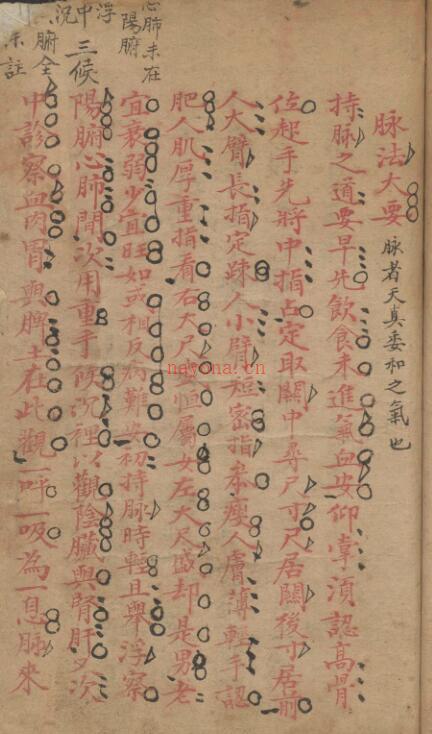 脉法大要 脉者天真委和之氣也
持脉之道要早先飲食未進氣血安仰掌須認高骨
位起手先將中指占定取關中尋尺寸尺居關後寸居前
人大臂長指定疎人小臂短密指參瘦人膚薄輕手認
肥人肌厚重指看右大尺盛恒屬女左大尺盛却是男老
心肺未在
陽腑
宜衰弱少宜旺如或相反病難安初持脉時輕且舉浮察
浮
中
況
三候
陽腑心肺間次用重手候沉裡以觀陰臟與腎肝又次
腑全
未註
中診察血肉胃與脾土在此觀一呼一吸為一息脉來
nayona.cn